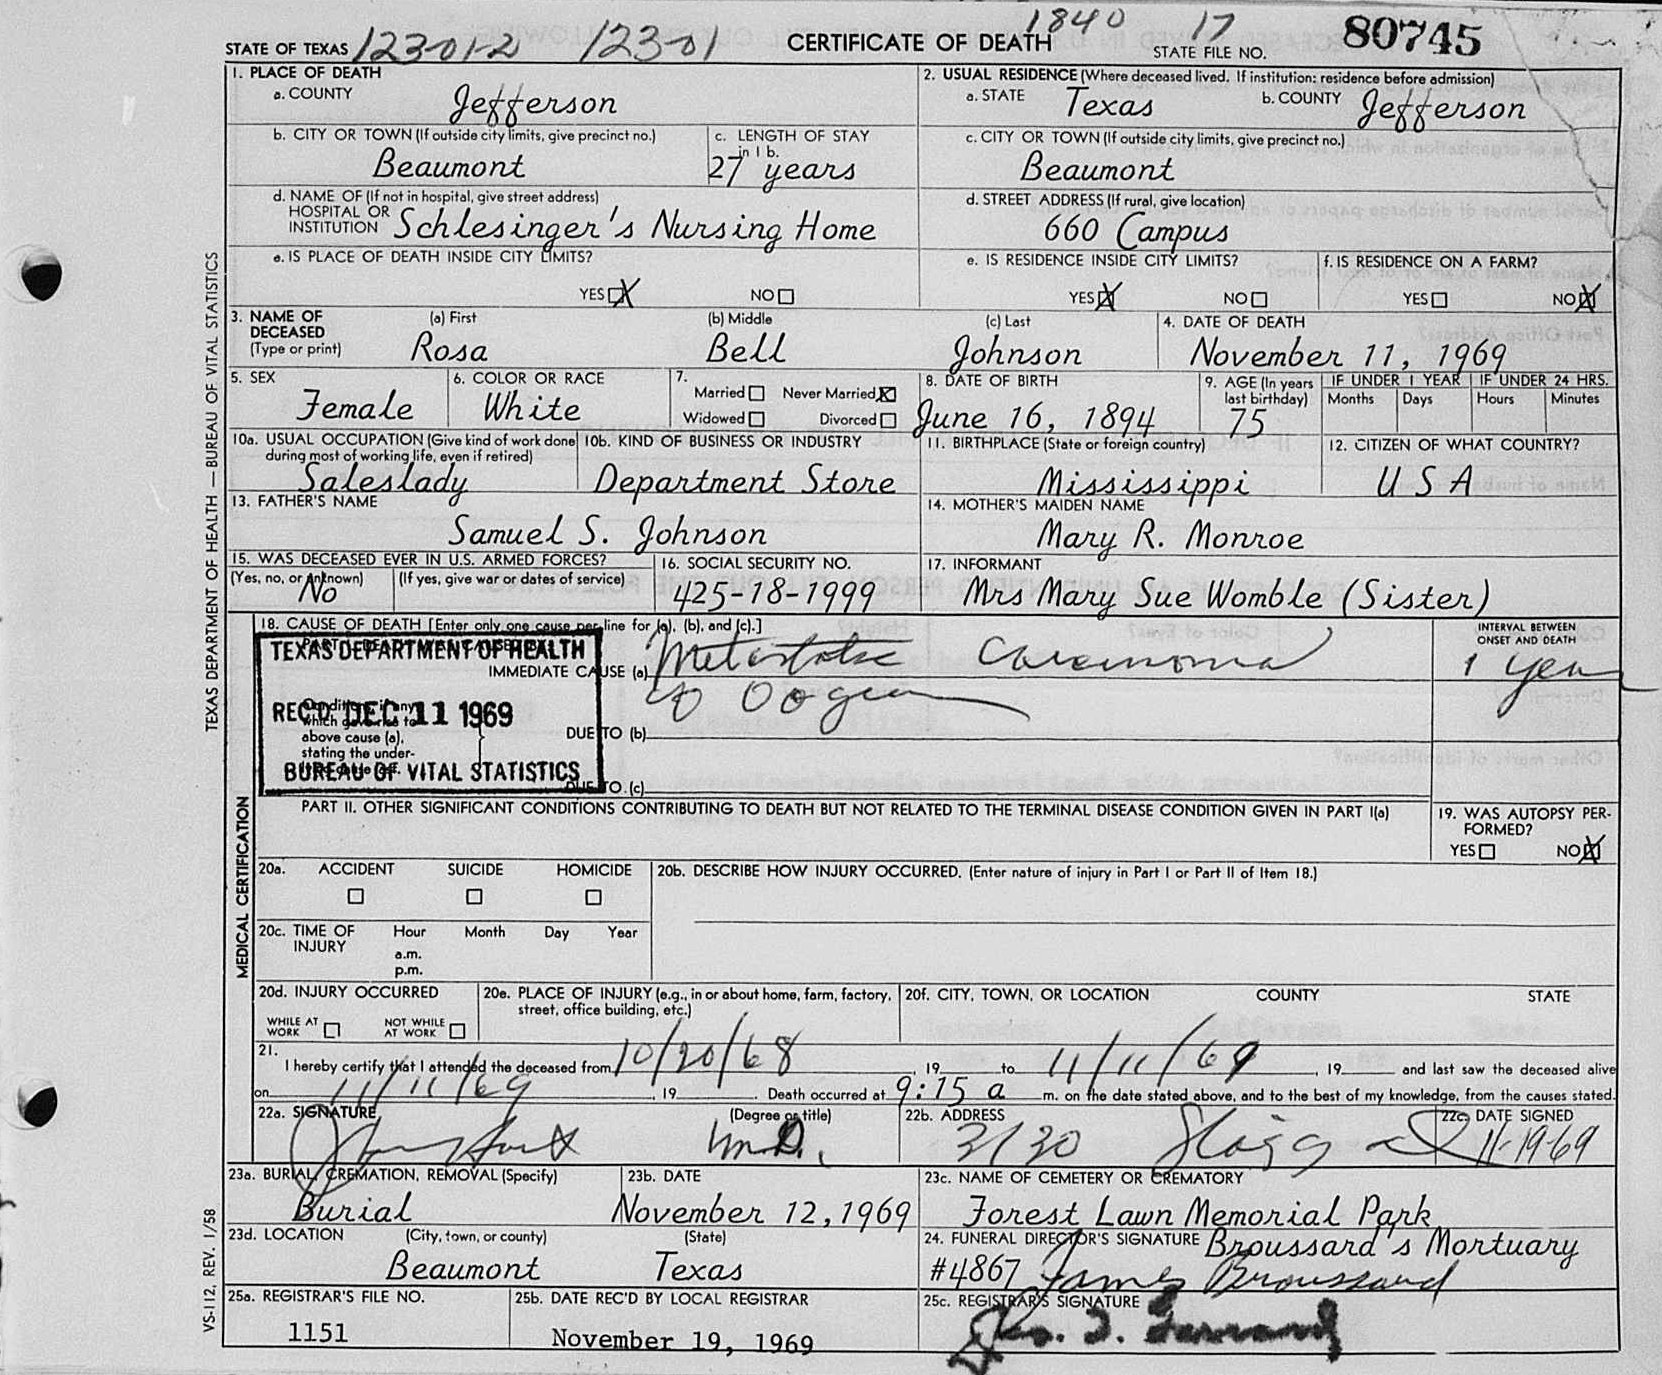 STATE OF TEXAS 123-01-2 123-01 CERTIFICATE OF DEATH 1840 17 STATE FILE NO. 80745
1. PLACE OF DEATH
a. COUNTY Jefferson
2. USUAL RESIDENCE (Where deceased lived. If institution: residence before admission)
a. STATE Texas b. COUNTY Jefferson
b. CITY OR TOWN (If outside city limits, give precinct no.) Beaumont
c. LENGTH OF STAY in 1 b. 27 years
c. CITY OR TOWN (If outside city limits, give precinct no.) Beaumont
d. NAME OF (If not in hospital, give street address)
HOSPITAL OR
INSTITUTION Schlesinger's Nursing Home
d. STREET ADDRESS (If rural, give location)
660 Campus
e. IS PLACE OF DEATH INSIDE CITY LIMITS?
YES X NO
e. IS RESIDENCE INSIDE CITY LIMITS?
YES X NO
f. IS RESIDENCE ON A FARM?
YES NO X
3. NAME OF DECEASED (Type or print)
(a) First Rosa
(b) Middle Bell
(c) Last Johnson
4. DATE OF DEATH
November 11, 1969
5. SEX Female
6. COLOR OR RACE White
7. Married Never Married X
Widowed Divorced
8. DATE OF BIRTH June 16, 1894
9. AGE (In years last birthday) 75
IF UNDER 1 YEAR Months Days
IF UNDER 24 HRS. Hours Minutes
10a. USUAL OCCUPATION (Give kind of work done during most of working life, even if retired)
Saleslady
10b. KIND OF BUSINESS OR INDUSTRY
Department Store
11. BIRTHPLACE (State or foreign country)
Mississippi
12. CITIZEN OF WHAT COUNTRY?
U S A
13. FATHER'S NAME
Samuel S. Johnson
14. MOTHER'S MAIDEN NAME
Mary R. Monroe
15. WAS DECEASED EVER IN U.S. ARMED FORCES?
(Yes, no, or unknown) (If yes, give war or dates of service)
No
16. SOCIAL SECURITY NO.
425-18-1999
17. INFORMANT
Mrs Mary Sue Womble (Sister)
18. CAUSE OF DEATH [Enter only one cause per line for (a), (b), and (c).]
INTERVAL BETWEEN ONSET AND DEATH
TEXAS DEPARTMENT OF HEALTH
REC'D DEC 11 1969
BUREAU OF VITAL STATISTICS
IMMEDIATE CAUSE (a) Metastatic Carcinoma 1 year
Conditions, if any,
which gave rise to
above cause (a),
stating the under-
DUE TO (b)
DUE TO (c)
PART II. OTHER SIGNIFICANT CONDITIONS CONTRIBUTING TO DEATH BUT NOT RELATED TO THE TERMINAL DISEASE CONDITION GIVEN IN PART I(a)
19. WAS AUTOPSY PER-
FORMED?
YES NO X
20a. ACCIDENT SUICIDE HOMICIDE
20b. DESCRIBE HOW INJURY OCCURRED. (Enter nature of injury in Part I or Part II of Item 18.)
20c. TIME OF INJURY Hour Month Day Year
a.m.
p.m.
20d. INJURY OCCURRED
WHILE AT WORK NOT WHILE AT WORK
20e. PLACE OF INJURY (e.g., in or about home, farm, factory, street, office building, etc.)
20f. CITY, TOWN, OR LOCATION COUNTY STATE
21.
I hereby certify that I attended the deceased from 10/20/68, 19 to 11/11/69, 19 and last saw the deceased alive
on 11/11/69, 19 . Death occurred at 9:15 a m. on the date stated above, and to the best of my knowledge, from the causes stated.
22a. SIGNATURE (Degree or title) M.D.
22b. ADDRESS 3130
22c. DATE SIGNED 11-19-69
23a. BURIAL, CREMATION, REMOVAL (Specify)
Burial
23b. DATE
November 12, 1969
23c. NAME OF CEMETERY OR CREMATORY
Forest Lawn Memorial Park
23d. LOCATION (City, town, or county) (State)
Beaumont Texas
24. FUNERAL DIRECTOR'S SIGNATURE Broussard's Mortuary
#4867 James Broussard
25a. REGISTRAR'S FILE NO.
1151
25b. DATE REC'D BY LOCAL REGISTRAR
November 19, 1969
25c. REGISTRAR'S SIGNATURE
TEXAS DEPARTMENT OF HEALTH — BUREAU OF VITAL STATISTICS
MEDICAL CERTIFICATION
VS-112, REV. 1/58